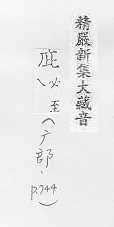 精嚴新集大藏音
庛、必至(广部、
p.744)